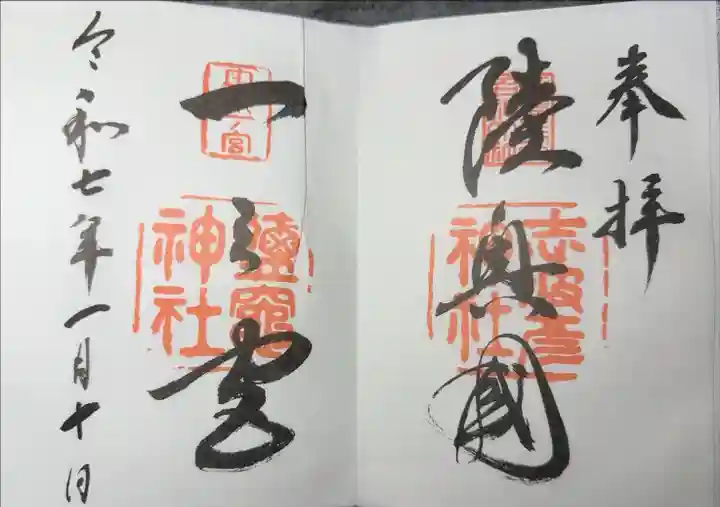 奉拝
陸奥國
志波彦
神社
一之宮
鹽竈
神社
令和七年一月十日